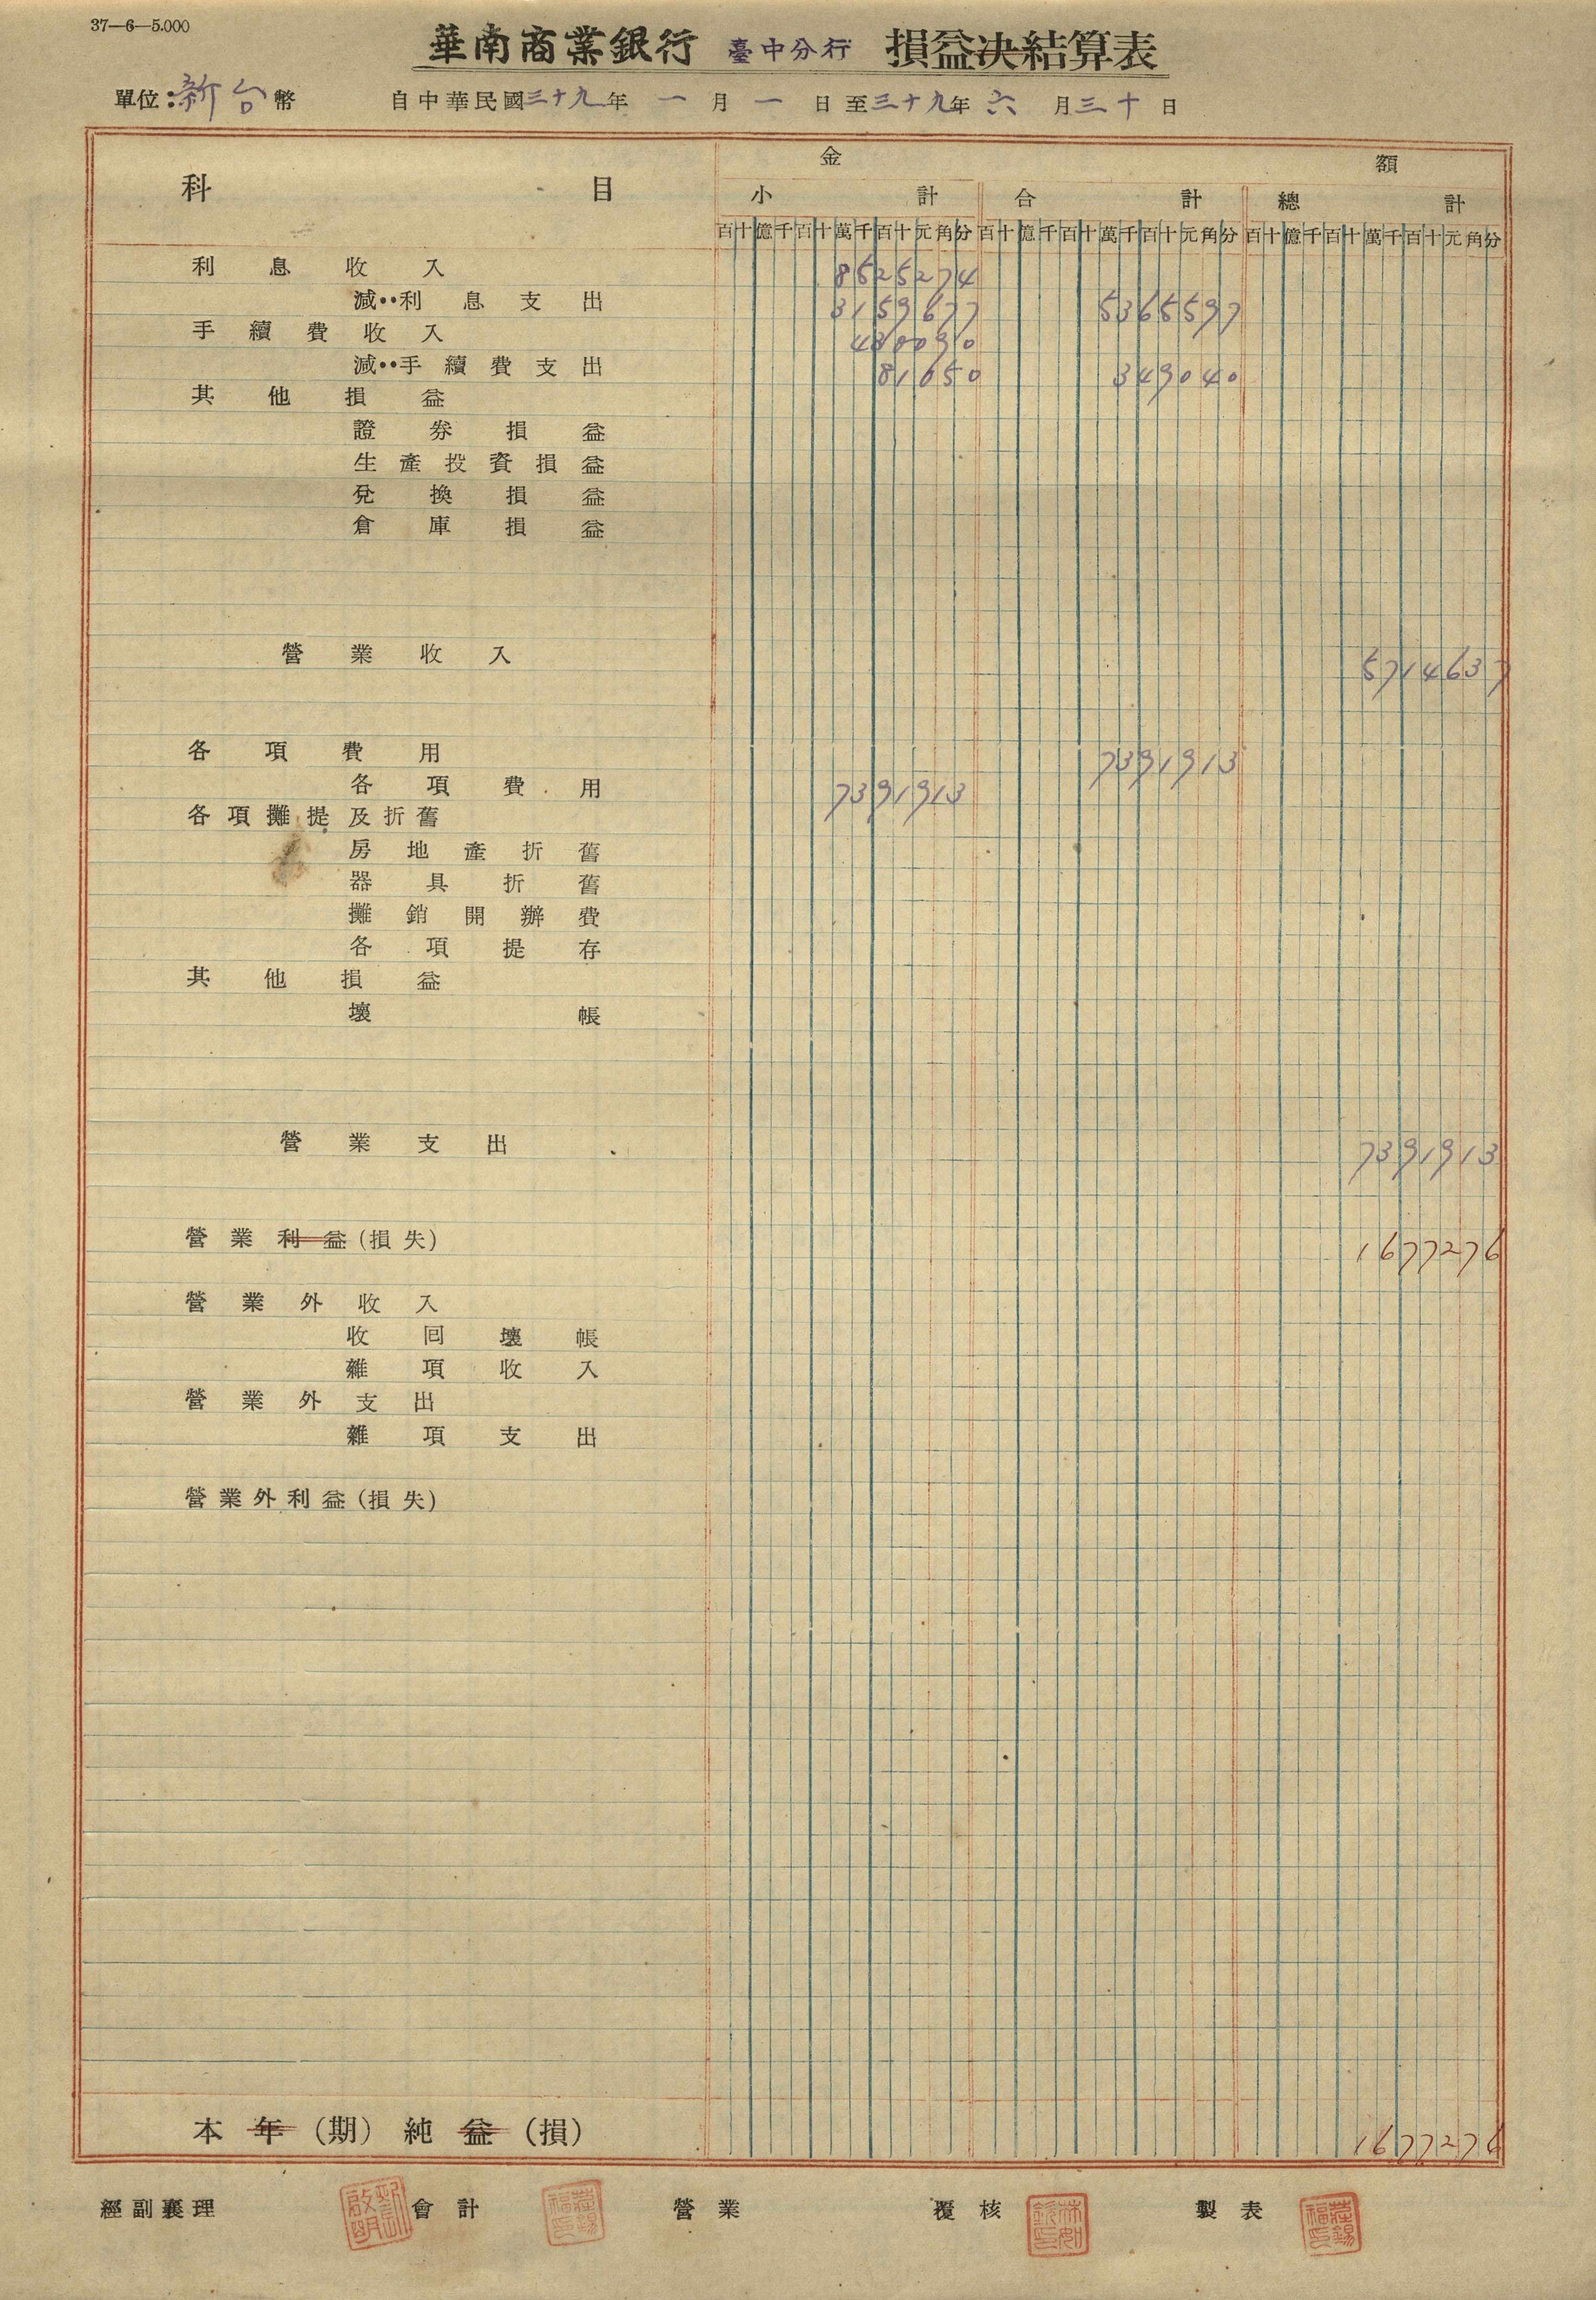 37—6—5.000
華南商業銀行 臺中分行 損益決結算表
單位：新台幣 自中華民國三十九年一月一日至三十九年六月三十日
科目 金額
小計 合計 總計
百十億千百十萬千百十元角分 百十億千百十萬千百十元角分 百十億千百十萬千百十元角分
利息收入 8525274
減‥利息支出 3159677 5365597
手續費收入 430090
減‥手續費支出 81050 349040
其他損益
證券損益
生產投資損益
兌換損益
倉庫損益
營業收入 5714637
各項費用 7391913
各項費用 7391913
各項攤提及折舊
房地產折舊
器具折舊
攤銷開辦費
各項提存
其他損益
壞帳
營業支出 7391913
營業利益(損失) 1677276
營業外收入
收回壞帳
雜項收入
營業外支出
雜項支出
營業外利益(損失)
本年(期)純益(損) 1677276
經副襄理 會計 莊錫福印 營業 覆核 製表 莊錫福印